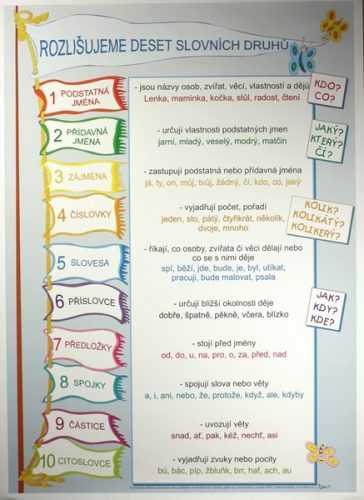 ROZLIŠUJEME DESET SLOVNÍCH DRUHŮ
1 PODSTATNÁ JMÉNA
- jsou názvy osob, zvířat, věcí, vlastností a dějů
Lenka, maminka, kočka, stůl, radost, čtení
KDO?
CO?
2 PŘÍDAVNÁ JMÉNA
- určují vlastnosti podstatných jmen
jarní, mladý, veselý, modrý, matčin
JAKÝ?
KTERÝ?
ČÍ?
3 ZÁJMENA
- zastupují podstatná nebo přídavná jména
já, ty, on, můj, tvůj, žádný, čí, kdo, co, jaký
4 ČÍSLOVKY
- vyjadřují počet, pořadí
jeden, sto, pátý, čtyřikrát, několik,
dvoje, mnoho
KOLIK?
KOLIKÁTÝ?
KOLIKERÝ?
5 SLOVESA
- říkají, co osoby, zvířata či věci dělají nebo
co se s nimi děje
spí, běží, jde, bude, je, byl, utíkat,
pracuji, bude malovat, psala
6 PŘÍSLOVCE
- určují bližší okolnosti děje
dobře, špatně, pěkně, včera, blízko
JAK?
KDY?
KDE?
7 PŘEDLOŽKY
- stojí před jmény
od, do, u, na, pro, o, za, před, nad
8 SPOJKY
- spojují slova nebo věty
a, i, ani, nebo, že, protože, když, ale, kdyby
9 ČÁSTICE
- uvozují věty
snad, ať, pak, kéž, nechť, asi
10 CITOSLOVCE
- vyjadřují zvuky nebo pocity
bú, bác, píp, žbluňk, brr, haf, ach, au